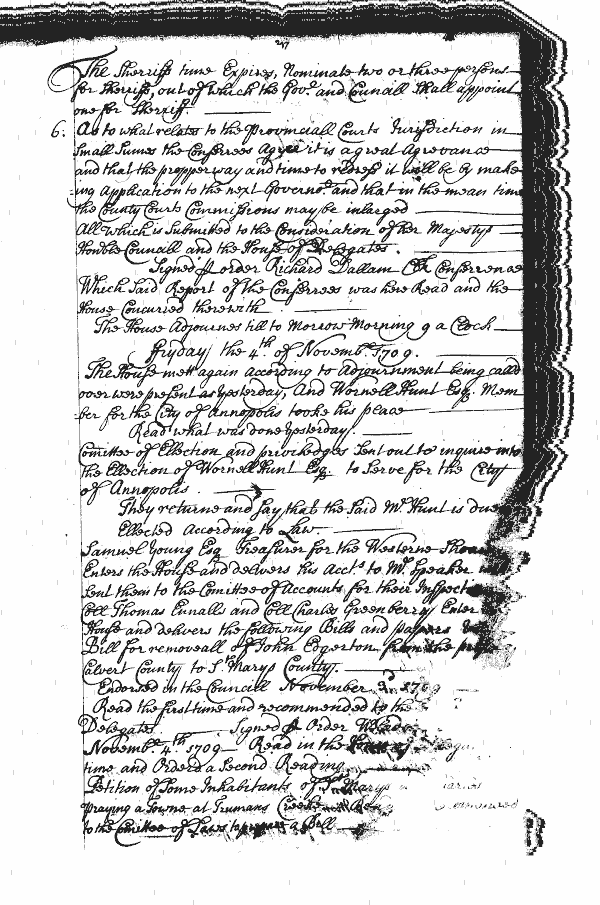 The Sherriffs time Expires, Nominate two or three persons
for Sherriff, out of which the Govr. and Councill Shall appoint
one for Sherriff.
6. As to what relates to the Provinciall Courts Jurisdiction in
Small Sumes the Conferrees Agree it is a great Agrevance
and that the propper way and time to redress it will be by make
ing Application to the next Governor. and that in the mean time
the County Courts Commissions may be inlarged
All which is Submitted to the Consideration of her Majestys
Honble Councill and the House of Delegates.
Signed p order Richard Dallam Clk Conferrence
Which Said Report of the Conferrees was here Read and the
House Concurred therewith
The House Adjournes till to Morrow Morning 9 a Clock
Fryday the 4th. of Novembr. 1709.
The House mett again according to Adjournment being calld
over were present as yesterday, And Wornell Hunt Esq. Mem
ber for the City of Annopolis tooke his place
Read what was done yesterday.
Comittee of Ellection and priviledges Sent out to inquire into
the Ellection of Wornell Hunt Esq. to Serve for the City
of Annopolis.
They returne and Say that the Said Mr. Hunt is due
Ellected According to Law.
Samuel Young Esq Treasurer for the Westerne Shoar
Enters the House and delivers his Accts. to Mr. Speaker
Sent them to the Comittee of Accounts for their Inspect
Coll Thomas Ennalls and Coll Charles Greenberry Enter
House and delivers the following Bills and papers
Bill for removeall of John Edgerton from the
Calvert County to St. Marys County.
Endorsed in the Councill November 1709
Read the first time and recommended to the
Delegates Signed p Order
Novembr. 4th 1709 Read in the
time and Orderd a Second Reading
Petition of Some Inhabitants of St. Marys
praying a Towne at Trumans Creeke
to the Comittee of Laws to prepare a Bill